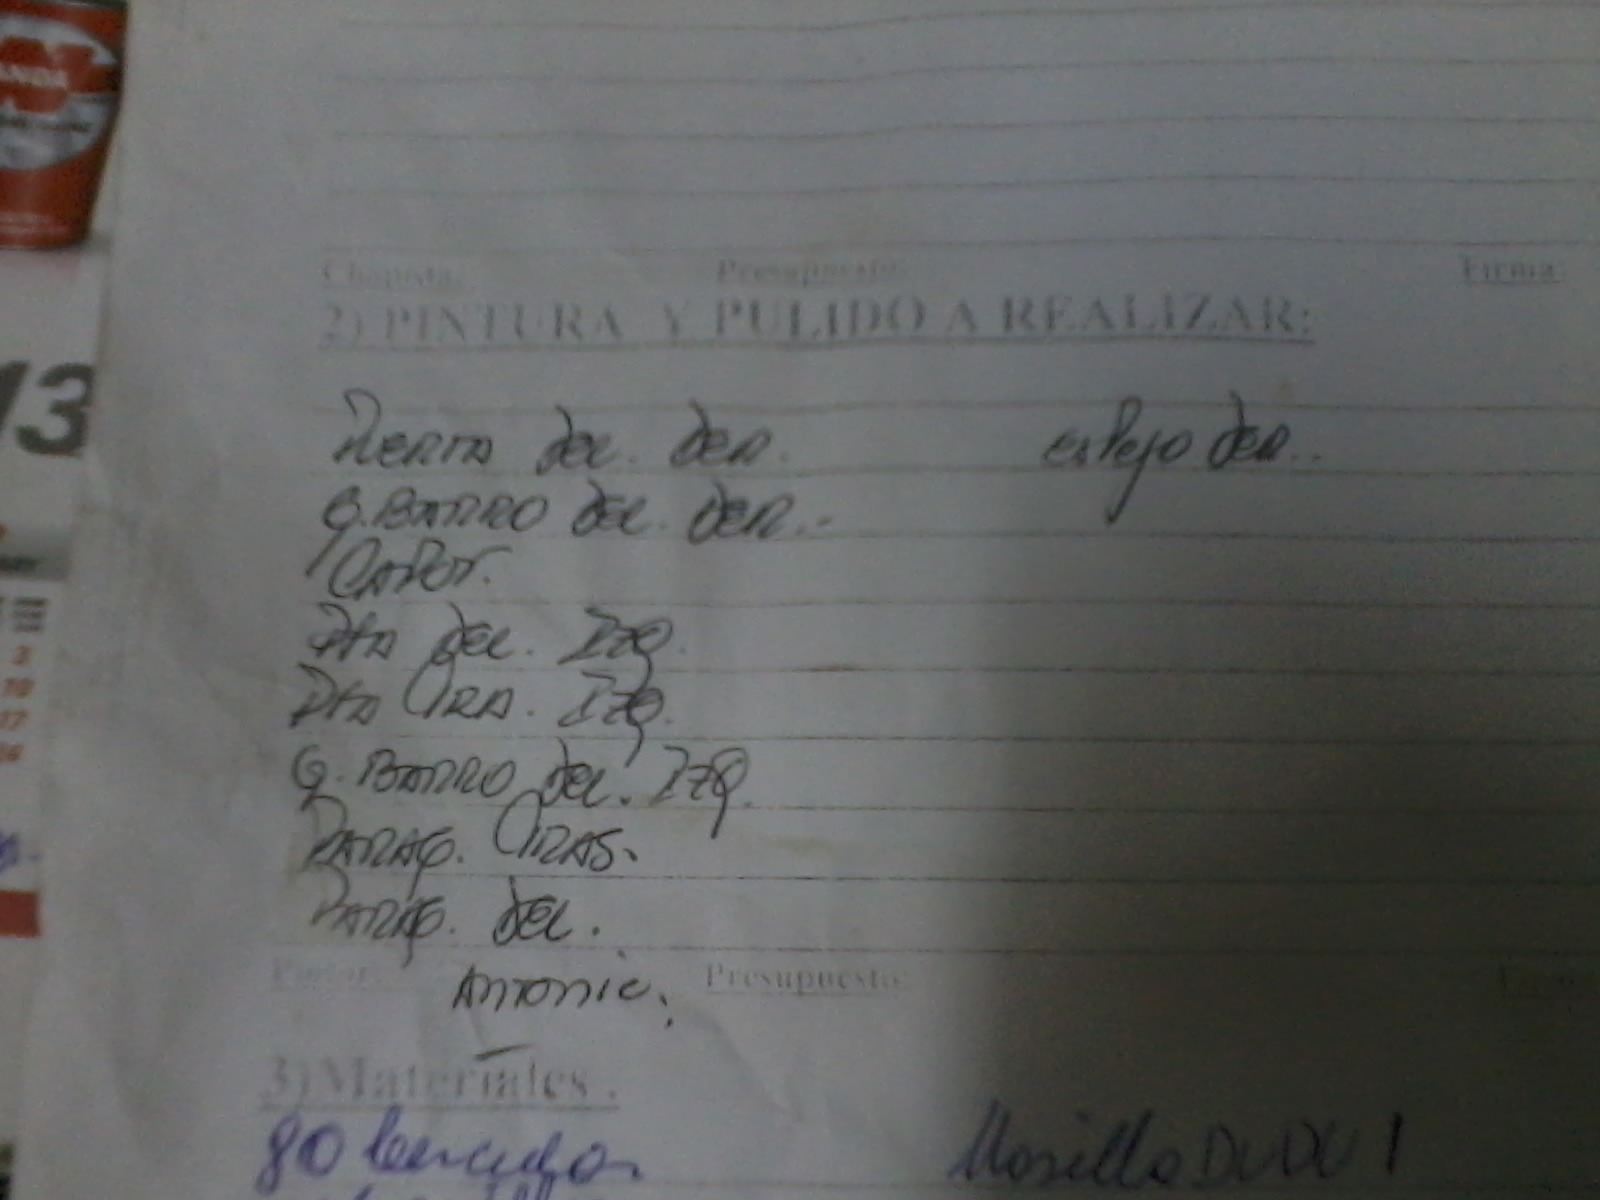 ANDA
13
3
10
17
Chapista: Presupuesto: Firma:
2) PINTURA Y PULIDO A REALIZAR:
Puerta del. Der. espejo Der..
G. BARRO del. Der..
CAPOT.
Pta del. Izq.
Pta TRA. Izq.
G. BARRO del. Izq.
PARAG. TRAS.
PARAG. del.
Pintor: Presupuesto:
Antonio.
3) Materiales .
80
Masilla DUDU 1